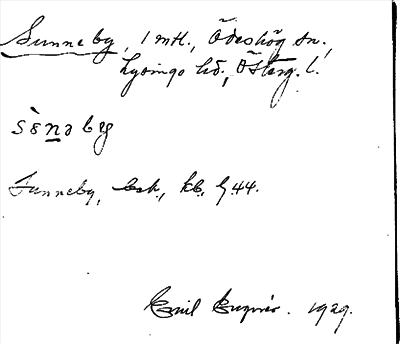 Sunneby, 1 mtl., Ödeshög sn.,
Lysings hd., Österg. l.
sènəby
Sunneby, bek., kb. 44.
Emil 1929.